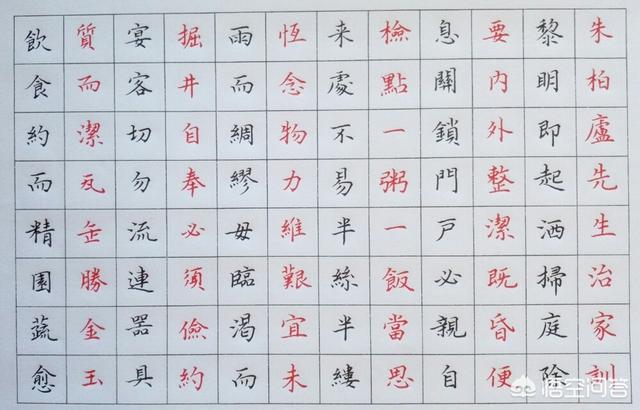 朱柏廬先生治家訓
黎明即起洒掃庭除
要內外整潔既昏便
息關鎖門戶必親自
檢點一粥一飯當思
来處不易半絲半縷
恆念物力維艱宜未
雨而綢繆毋臨渴而
掘井自奉必須儉約
宴客切勿流連器具
質而潔瓦缶勝金玉
飲食約而精園蔬愈
悟空问答